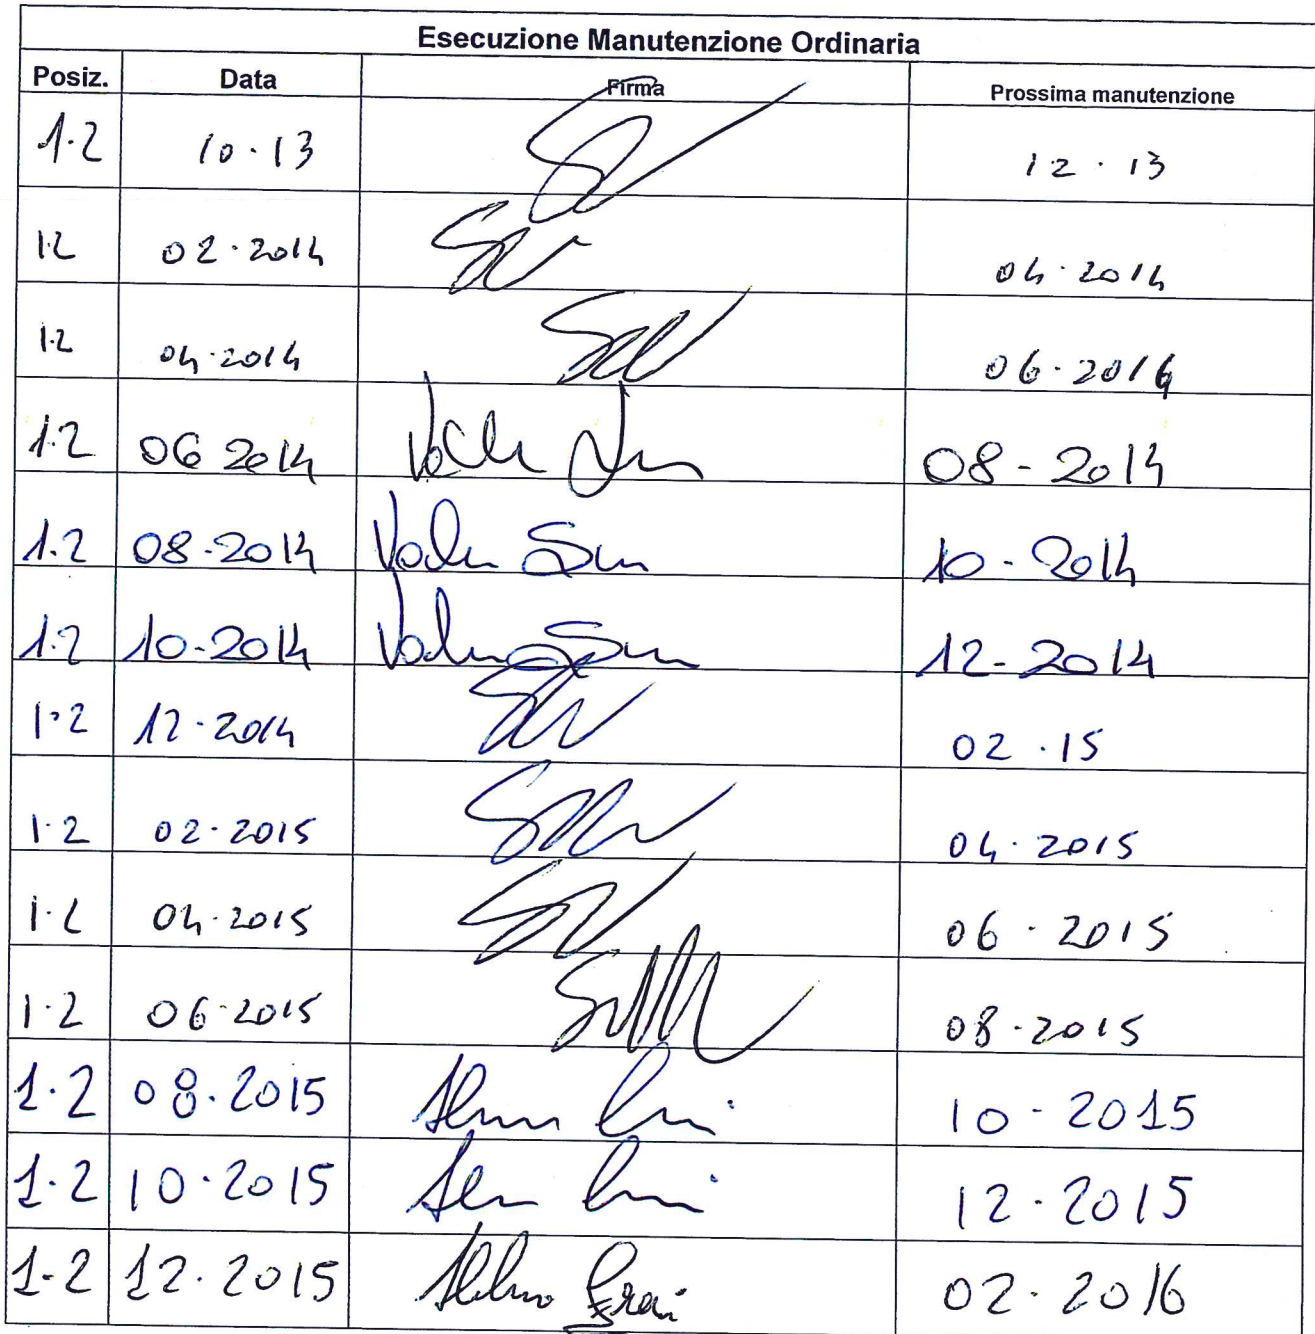 Esecuzione Manutenzione Ordinaria
Posiz. Data Firma Prossima manutenzione
1.2 10.13 12.13
1.2 02.2014 04.2014
1.2 04.2014 06.2014
1.2 06 2014 08-2014
1.2 08-2014 10-2014
1.2 10-2014 12-2014
1.2 12.2014 02.15
1.2 02.2015 04.2015
1.2 04.2015 06.2015
1.2 06.2015 08.2015
1.2 08.2015 10-2015
1.2 10.2015 12.2015
1-2 12.2015 02.2016